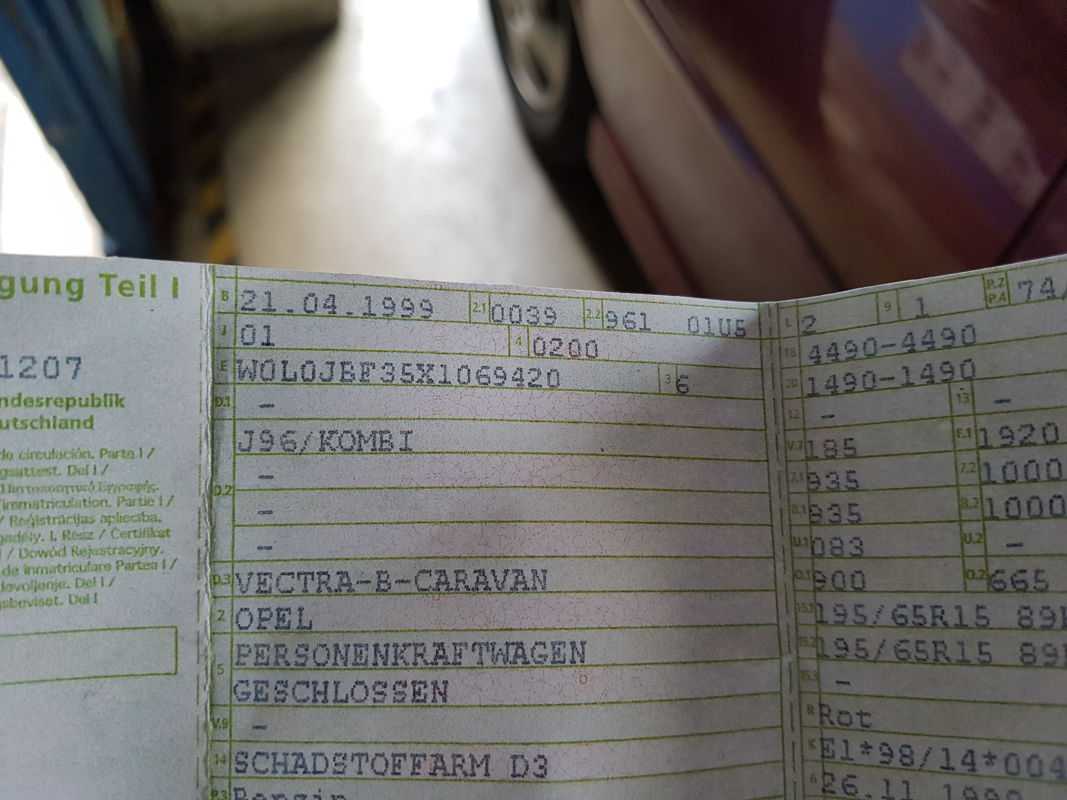 gung Teil I
1207
ndesrepublik
utschland
de circulación. Parte I /
gsattest. Del I /
immatriculation. Partie I /
/ Reģistrācijas apliecība.
gadély. I. Rész / Certifikat
I / Dowód Rejestracyjny.
de inmatriculare Partea I /
dovoljenje. Del I /
sbeviset. Del I
B 21.04.1999 2.1 0039 2.2 961 01U5
J 01 4 0200
E W0L0JBF35X1069420 3 6
D.1 -
J96/KOMBI
-
D.2 -
-
D.3 VECTRA-B-CARAVAN
2 OPEL
5 PERSONENKRAFTWAGEN
GESCHLOSSEN
V.9 -
14 SCHADSTOFFARM D3
P.3 Benzin
L 2 9 1 P.2 P.4 74/
18 4490-4490
20 1490-1490
12 - 13 -
V.7 185 F.1 1920
7.1 935 7.2 1000
8.1 935 8.2 1000
U.1 083 U.2 -
O.1 900 O.2 665
15.1 195/65R15 89
15.2 195/65R15 89
15.3 -
R Rot
K E1*98/14*004
6 26.11.1999